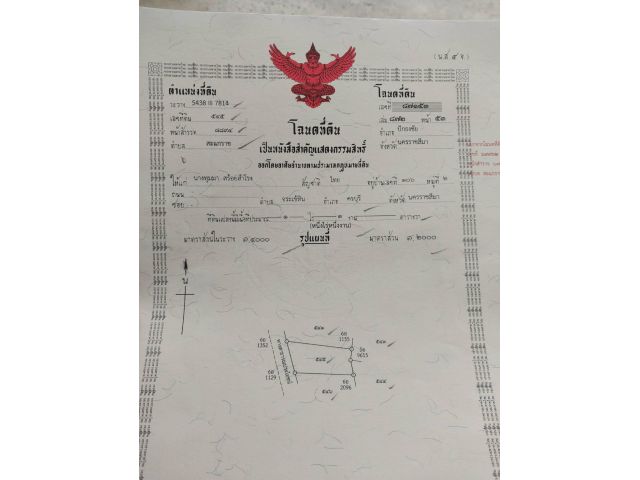 (น.ส. ๔ จ.)
ตำแหน่งที่ดิน
ระวาง 5438 III 7814
เลขที่ดิน ๕๔๕
หน้าสำรวจ
ตำบล
โฉนดที่ดิน
เลขที่ ๘๗๒๕๓
เล่ม ๘๗๓ หน้า ๕๓
อำเภอ ปักธงชัย
จังหวัด นครราชสีมา
โฉนดที่ดิน
เป็นหนังสือสำคัญแสดงกรรมสิทธิ์
ออกโดยอาศัยอำนาจตามประมวลกฎหมายที่ดิน
ให้แก่ สัญชาติ ไทย อยู่บ้านเลขที่ ๑๐๖ หมู่ที่ ๒
ถนน
ซอย ตำบล จระเข้หิน อำเภอ ครบุรี จังหวัด นครราชสีมา
ที่ดินแปลงนี้มีเนื้อที่ประมาณ ๑ ไร่ ๑ งาน ตารางวา
(หนึ่งไร่หนึ่งงาน)
มาตราส่วนในระวาง ๑:๔๐๐๐ รูปแผนที่ มาตราส่วน ๑:๒๐๐๐
น
6ถ
1352
1155
9615
๕๔๕
1129
2096
ทางสาธารณประโยชน์